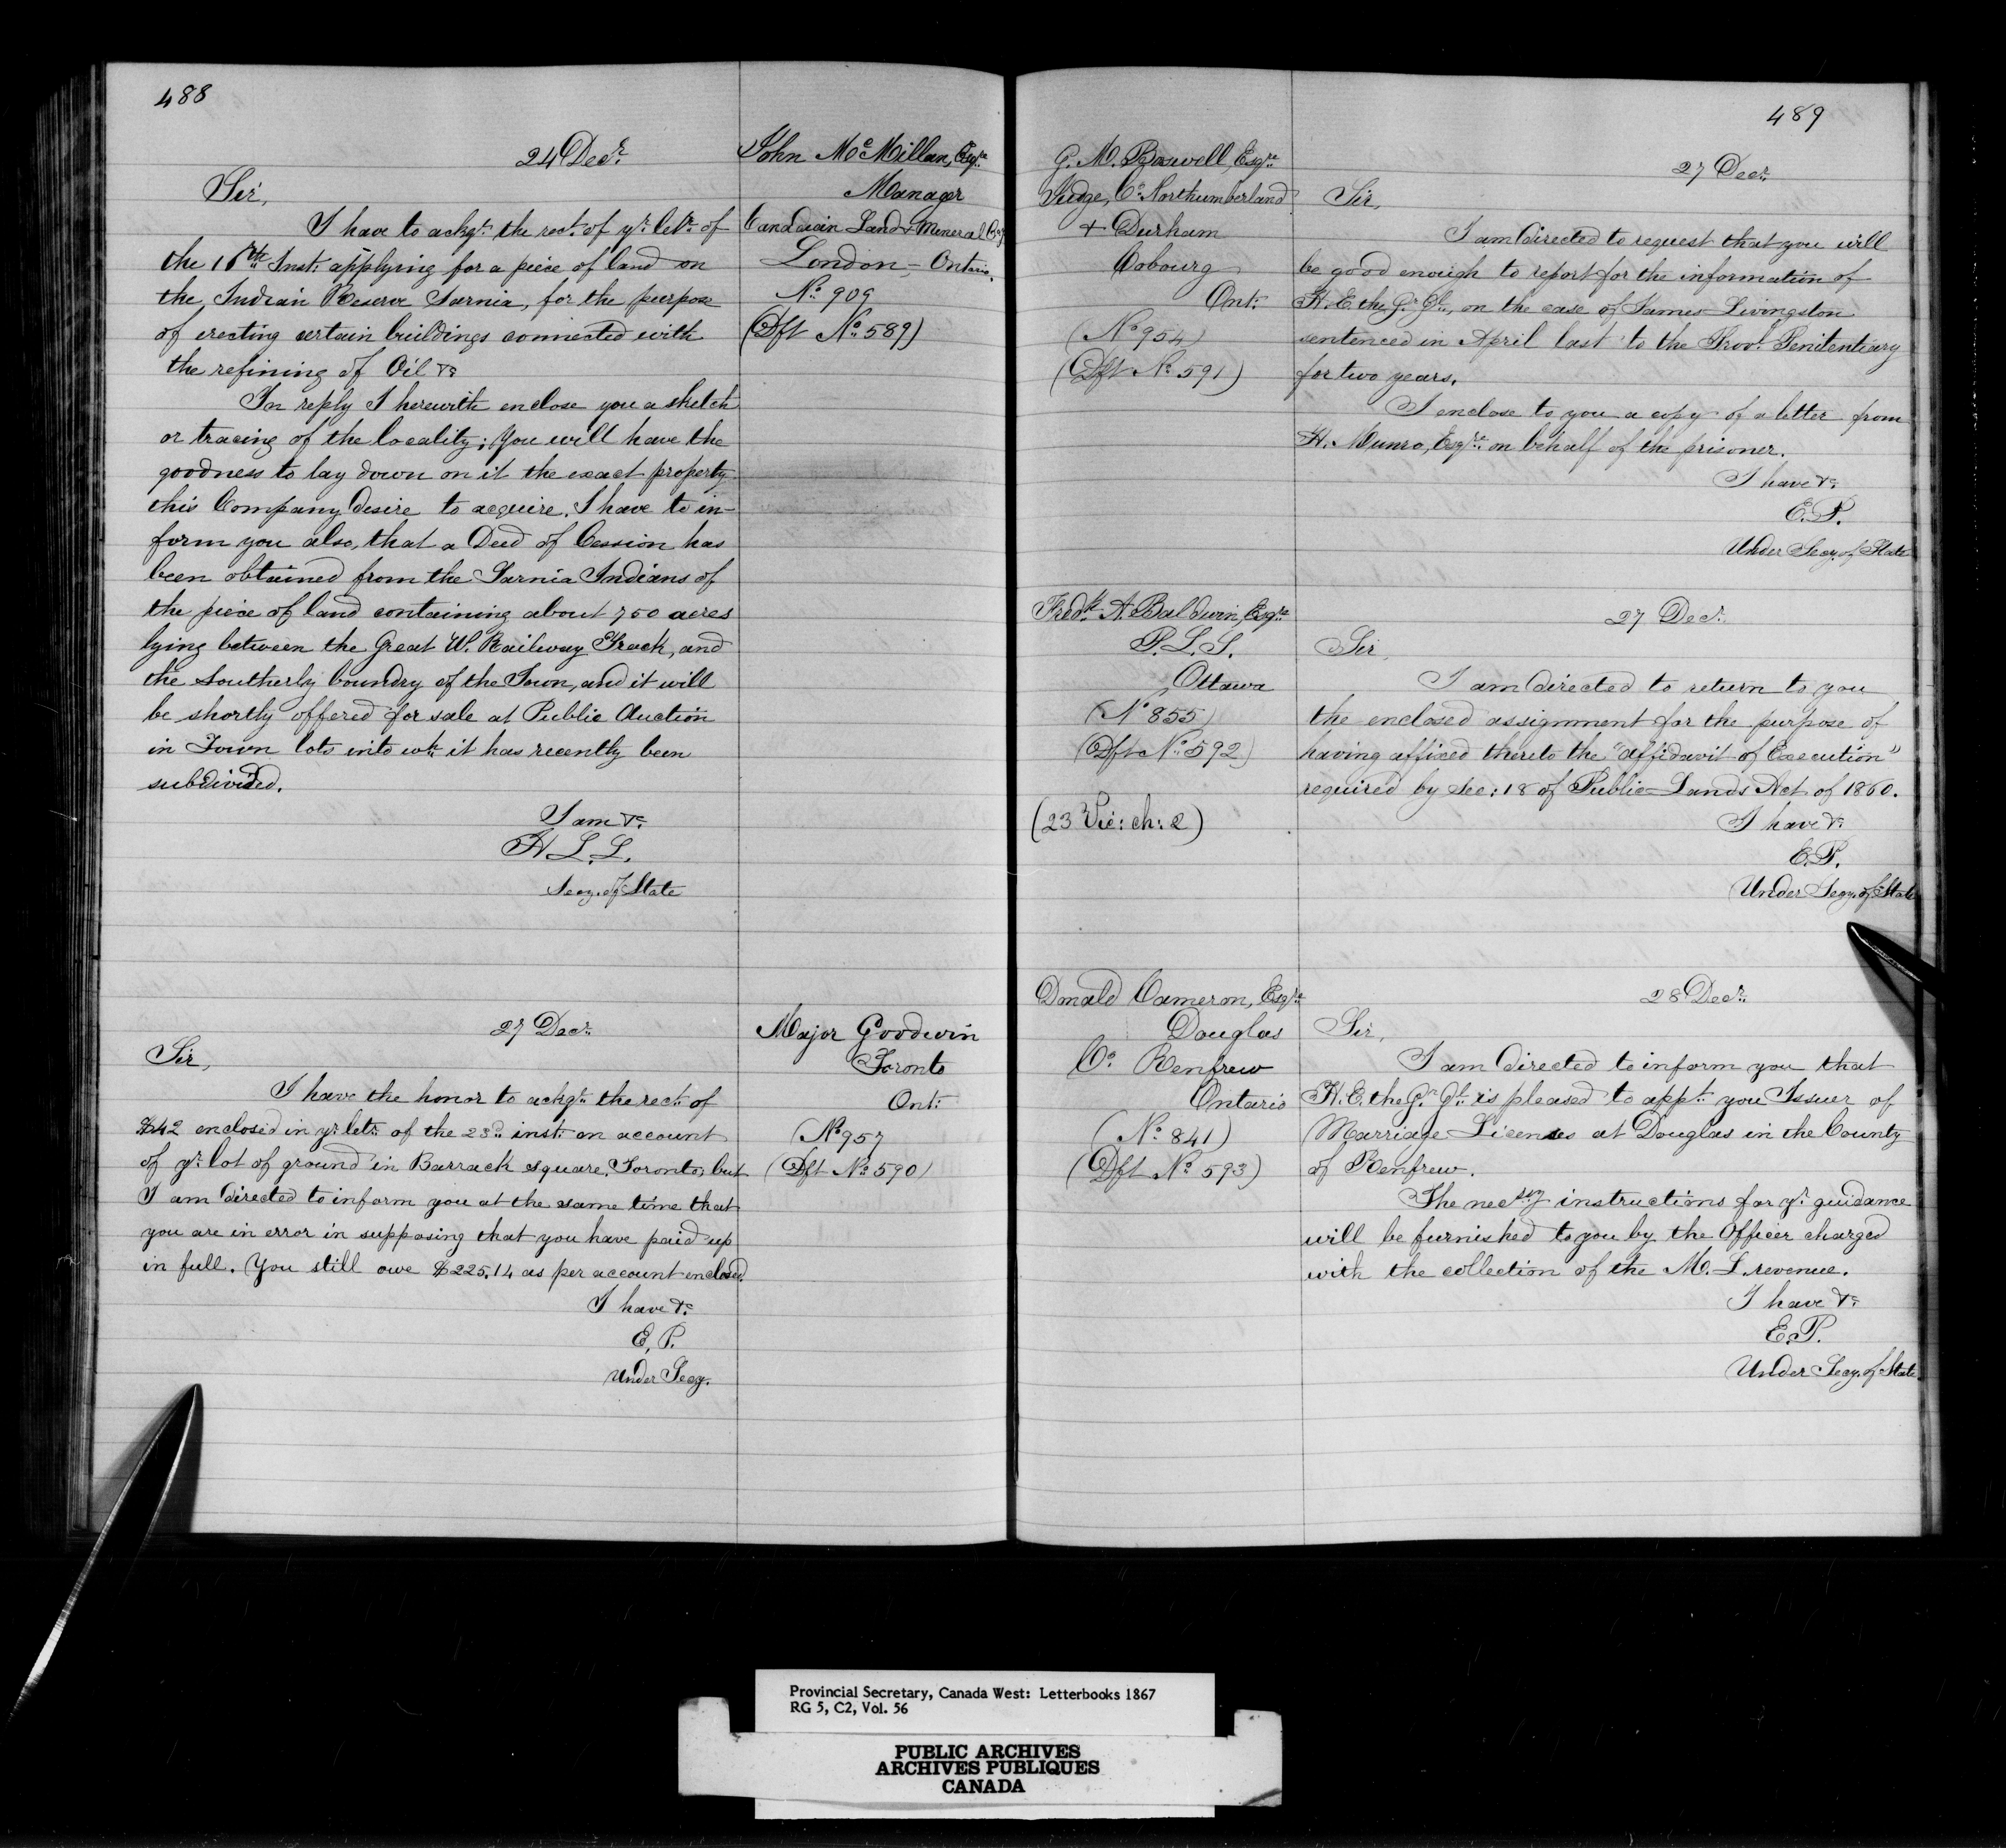 488
24 Decr.
John McMillan, Esqre
Manager
Candaian Land & Mineral Coy
London, - Ontario.
No. 909
(Dft No. 589)
Sir,
I have to ackgt. the rect. of yr. letr. of
the 16th Inst. applying for a piece of land on
the Indian Reserve Sarnia, for the purpose
of erecting certain buildings connected with
the refining of Oil &c
In reply I herewith enclose you a sketch
or tracing of the locality; You will have the
goodness to lay down on it the exact property
this Company desire to acquire. I have to in-
form you also, that a Deed of Cession has
been obtained from the Sarnia Indians of
the piece of land containing about 750 acres
lying between the Great W. Railway Track, and
the Southerly boundry of the Town, and it will
be shortly offered for sale at Public Auction
in Town lots into wh. it has recently been
subdivided.
I am &c.
H L. L.
Secy. of State
27 Decr.
Major Goodwin
Toronto
Ont:
(No. 957)
(Dft No. 590)
Sir,
I have the honor to ackgt. the rect. of
$42 enclosed in yr. letr. of the 23d. inst. on account
of yr. lot of ground in Barrack square, Toronto; but
I am directed to inform you at the same time that
you are in error in supposing that you have paid up
in full. You still owe $225.14 as per account enclosed.
I have &c.
E. P.
Under Secy.
489
G. M. Boswell, Esqre.
Judge, Co. Northumberland
& Durham
Cobourg
Ont:
(No. 954)
(Dft No. 591)
27 Decr.
Sir,
I am directed to request that you will
be good enough to report for the information of
H. E. the Gr. Gl., on the case of James Livingston
sentenced in April last to the Provl. Penitentiary
for two years.
I enclose to you a copy of a letter from
H. Munro, Esqre. on behalf of the prisoner.
I have &c.
E. P.
Under Secy. of State
Fredk. A. Baldwin, Esqre.
P. L. S.
Ottawa
(No. 855)
(Dft No. 592)
(23 Vic: ch: 2)
27 Decr.
Sir,
I am directed to return to you
the enclosed assignment for the purpose of
having affixed thereto the "affidavit of Execution"
required by Sec: 18 of Public Lands Act of 1860.
I have &c.
E. P.
Under Secy. of State
Donald Cameron, Esqre
Douglas
Co. Renfrew
Ontario
(No. 841)
(Dft No. 593)
28 Decr.
Sir,
I am directed to inform you that
H. E. the Gr. Gl. is pleased to appt. you Issuer of
Marriage Licenses at Douglas in the County
of Renfrew.
The necsry instructions for yr. guidance
will be furnished to you by the Officer charged
with the collection of the M. L. revenue.
I have &c.
E. P.
Under Secy. of State
Provincial Secretary, Canada West: Letterbooks 1867
RG 5, C2, Vol. 56
PUBLIC ARCHIVES
ARCHIVES PUBLIQUES
CANADA